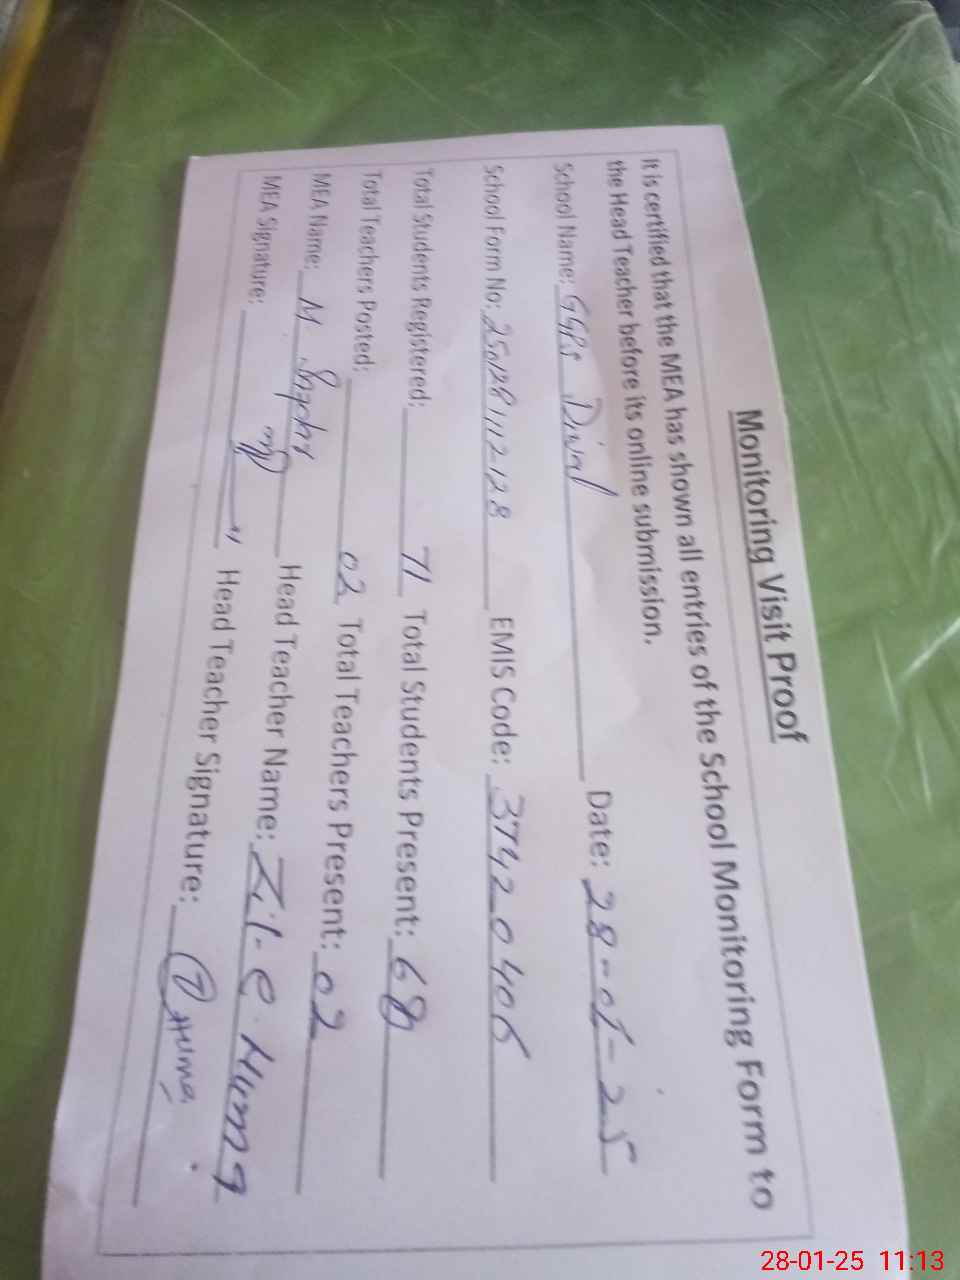 Monitoring Visit Proof
It is certified that the MEA has shown all entries of the School Monitoring Form to
the Head Teacher before its online submission.
School Name: GGPS Dival Date: 28-01-25
School Form No: 250128112128 EMIS Code: 37420406
Total Students Registered: 71 Total Students Present: 68
Total Teachers Posted: 02 Total Teachers Present: 02
MEA Name: M Head Teacher Name: Zil-e-Huma
MEA Signature: Head Teacher Signature: Huma
28-01-25 11:13